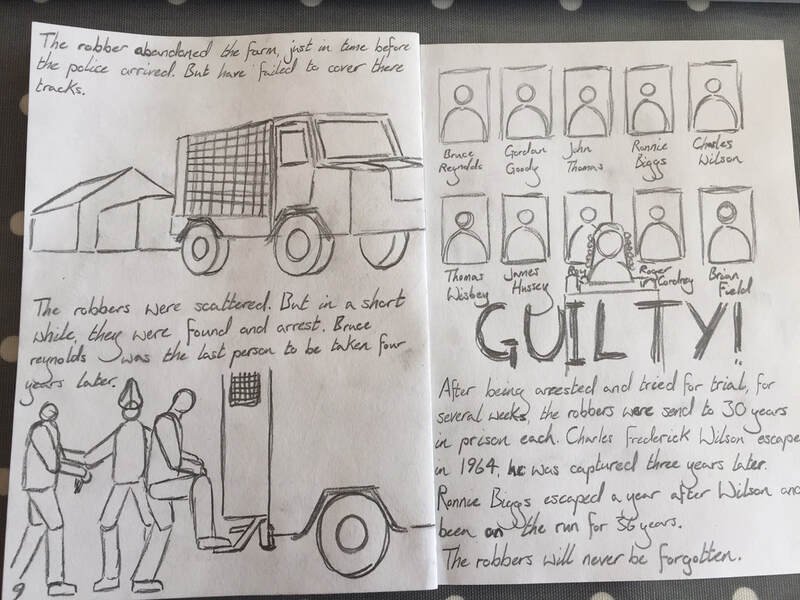 The robber abandoned the farm, just in time before
the police arrived. But have failed to cover there
tracks.
The robbers were scattered. But in a short
while, they were found and arrest. Bruce
reynolds was the last person to be taken four
years later.
9
Bruce
Reynolds
Gordan
Goody
John
Thomas
Ronnie
Biggs
Charles
Wilson
Thomas
Wisbey
James
Hussey
Roy
Roger
Cordrey
Brian
Field
GUILTY!
After being arrested and tried for trial, for
several weeks, the robbers were send to 30 years
in prison each. Charles Frederick Wilson escape
in 1964, he was captured three years later.
Ronnie Biggs escaped a year after Wilson and
been on the run for 36 years.
The robbers will never be forgotten.